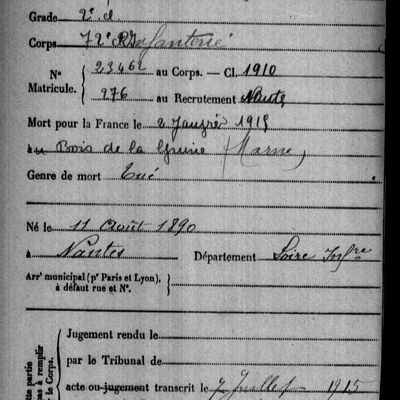 Grade 2e cl
Corps 72e R. Infanterie
No Matricule. 23462 au Corps. — Cl. 1910
276 au Recrutement Nantes
Mort pour la France le 2 Janvier 1915
au Bois de la Grurie (Marne)
Genre de mort tué
Né le 11 Août 1890
à Nantes Département Loire Infre
Arrt municipal (pr Paris et Lyon),
à défaut rue et No.
Jugement rendu le
par le Tribunal de
acte ou jugement transcrit le 7 Juillet 1915